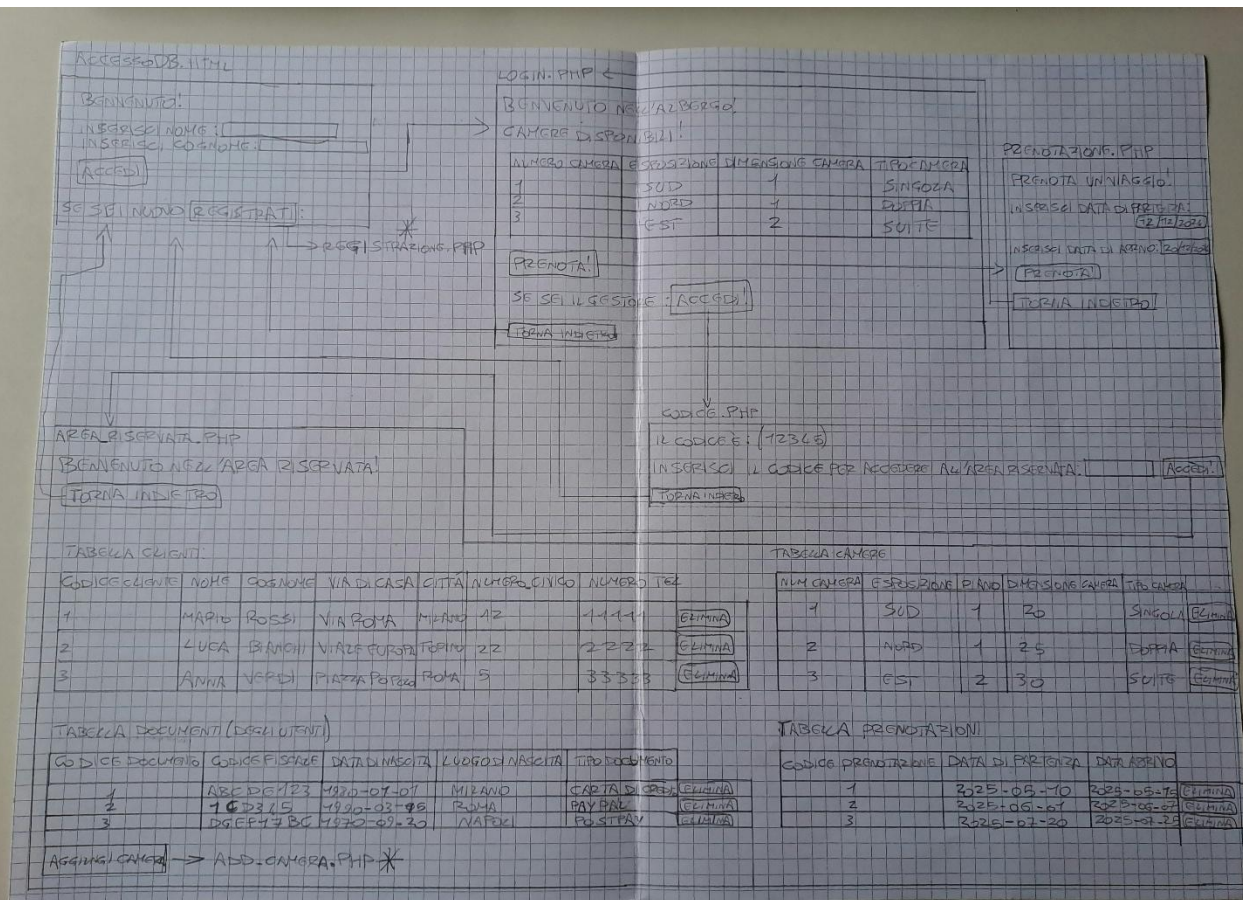 ACCESSODB.HTML
BENVENUTO!
INSERISCI NOME:
INSERISCI COGNOME:
ACCEDI
SE SEI NUOVO REGISTRATI:
REGISTRAZIONE.PHP
LOGIN.PHP
BENVENUTO NELL'ALBERGO!
CAMERE DISPONIBILI!
NUMERO CAMERA ESPOSIZIONE DIMENSIONE CAMERA TIPO CAMERA
1 SUD 1 SINGOLA
2 NORD 1 DOPPIA
3 EST 2 SUITE
PRENOTA!
SE SEI IL GESTORE: ACCEDI!
TORNA INDIETRO
PRENOTAZIONE.PHP
PRENOTA UN VIAGGIO!
INSERISCI DATA DI PARTENZA:
INSERISCI DATA DI
PRENOTA!
TORNA INDIETRO!
CODICE.PHP
IL CODICE È: (12345)
INSERISCI IL CODICE PER ACCEDERE ALL'AREA RISERVATA: ACCEDI!
TORNA INDIETRO
AREA_RISERVATA.PHP
BENVENUTO NELL'AREA RISERVATA!
TORNA INDIETRO
TABELLA CLIENTI:
CODICE CLIENTE NOME COGNOME VIA DI CASA CITTÀ NUMERO_CIVICO NUMERO TEL
1 MARIO ROSSI VIA ROMA MILANO 12 11111 ELIMINA
2 LUCA BIANCHI VIALE EUROPA TORINO 22 2222 ELIMINA
3 ANNA VERDI PIAZZA POPOLO ROMA 5 33333 ELIMINA
TABELLA CAMERE
NUM CAMERA ESPOSIZIONE PIANO DIMENSIONE CAMERA TIPO CAMERA
1 SUD 1 20 SINGOLA ELIMINA
2 NORD 1 25 DOPPIA ELIMINA
3 EST 2 30 SUITE ELIMINA
TABELLA DOCUMENTI (DEGLI UTENTI)
CODICE DOCUMENTO CODICE FISCALE DATA DI NASCITA LUOGO DI NASCITA TIPO DOCUMENTO
1 1980-01-01 MILANO CARTA DI ELIMINA
2 ROMA PAYPAL ELIMINA
3 1970-09-20 NAPOLI POSTPAY ELIMINA
TABELLA PRENOTAZIONI
CODICE PRENOTAZIONE DATA DI PARTENZA DATA
1 2025-05-10 2025-05-15 ELIMINA
2 2025-06-01 ELIMINA
3 2025-07-20 2025-07-25 ELIMINA
AGGIUNGI CAMERA ADD_CAMERA.PHP